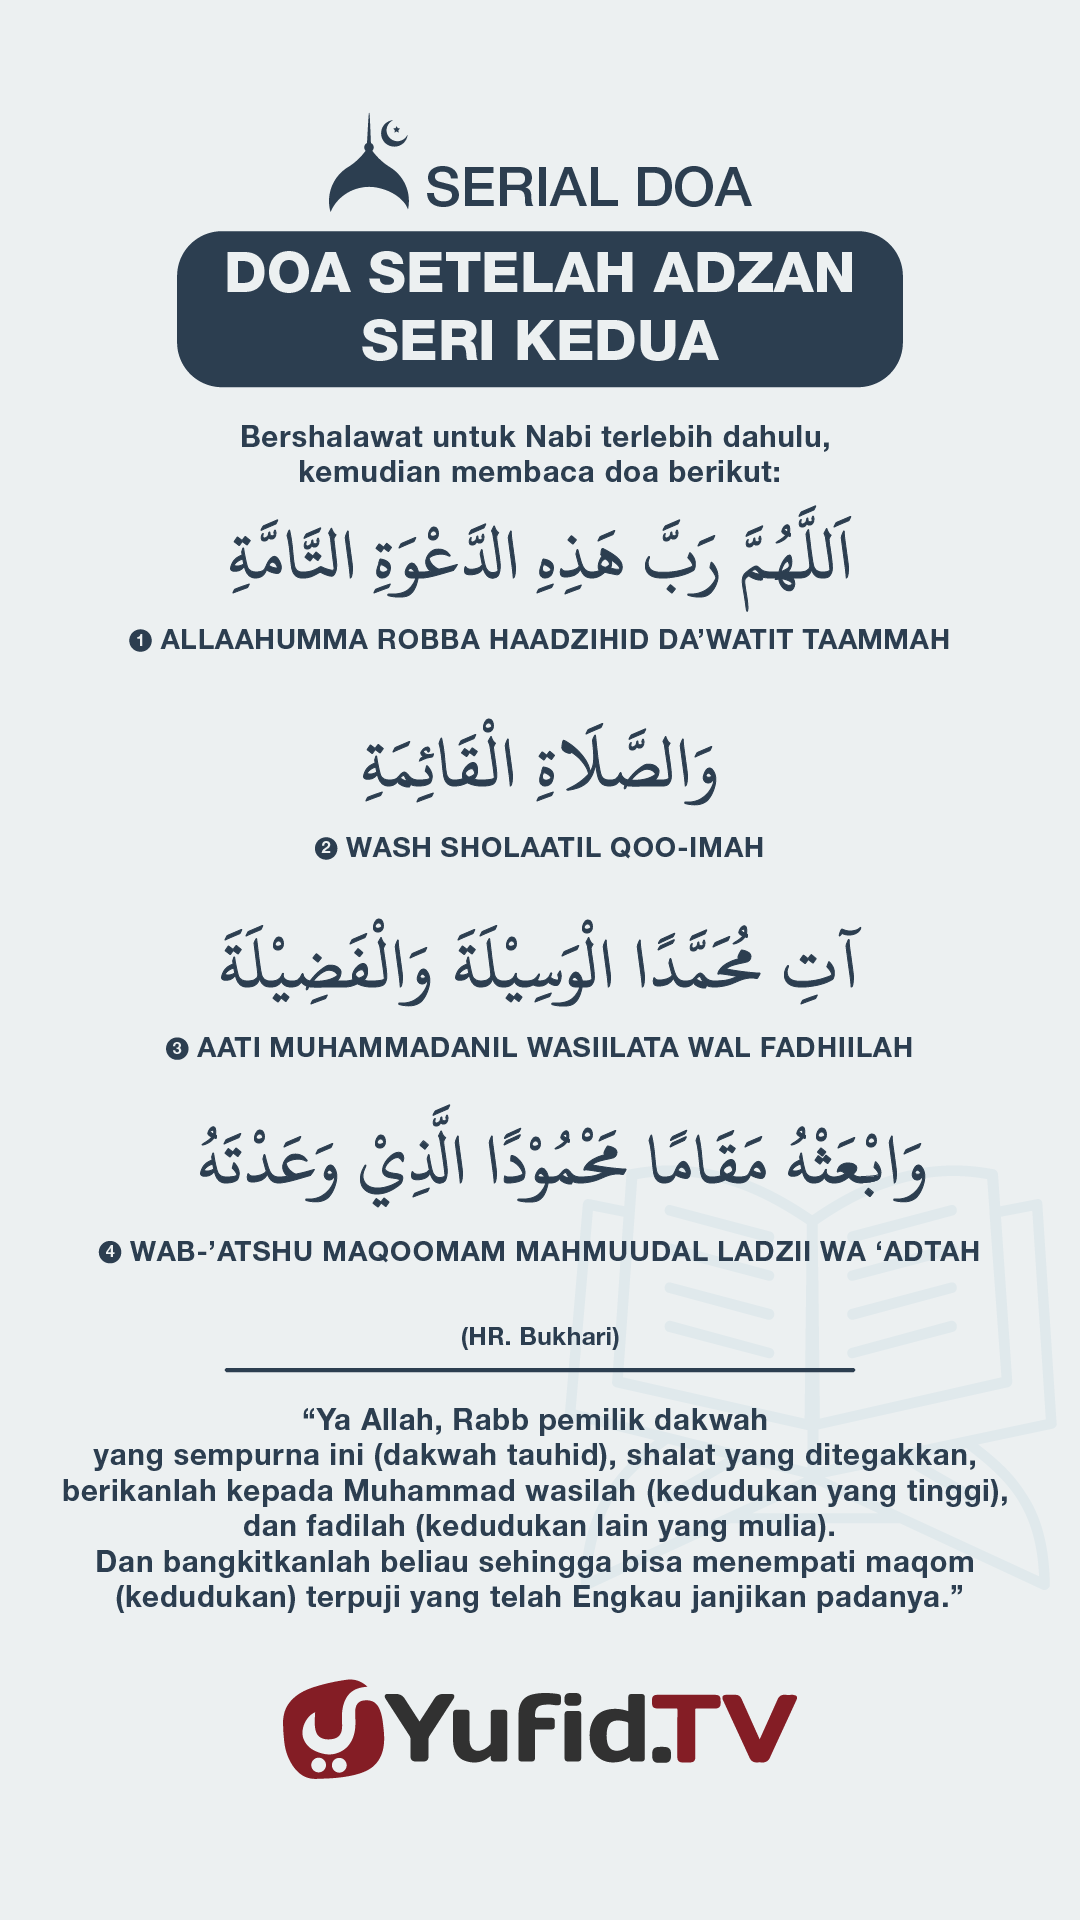 SERIAL DOA
DOA SETELAH ADZAN
SERI KEDUA
Bershalawat untuk Nabi terlebih dahulu,
kemudian membaca doa berikut:
اَللَّهُمَّ رَبَّ هَذِهِ الدَّعْوَةِ التَّامَّةِ
❶ ALLAAHUMMA ROBBA HAADZIHID DA’WATIT TAAMMAH
وَالصَّلَاةِ الْقَائِمَةِ
❷ WASH SHOLAATIL QOO-IMAH
آتِ مُحَمَّدًا الْوَسِيْلَةَ وَالْفَضِيْلَةَ
❸ AATI MUHAMMADANIL WASIILATA WAL FADHIILAH
وَابْعَثْهُ مَقَامًا مَحْمُوْدًا الَّذِيْ وَعَدْتَهُ
❹ WAB-’ATSHU MAQOOMAM MAHMUUDAL LADZII WA ‘ADTAH
(HR. Bukhari)
“Ya Allah, Rabb pemilik dakwah
yang sempurna ini (dakwah tauhid), shalat yang ditegakkan,
berikanlah kepada Muhammad wasilah (kedudukan yang tinggi),
dan fadilah (kedudukan lain yang mulia).
Dan bangkitkanlah beliau sehingga bisa menempati maqom
(kedudukan) terpuji yang telah Engkau janjikan padanya.”
Yufid.TV